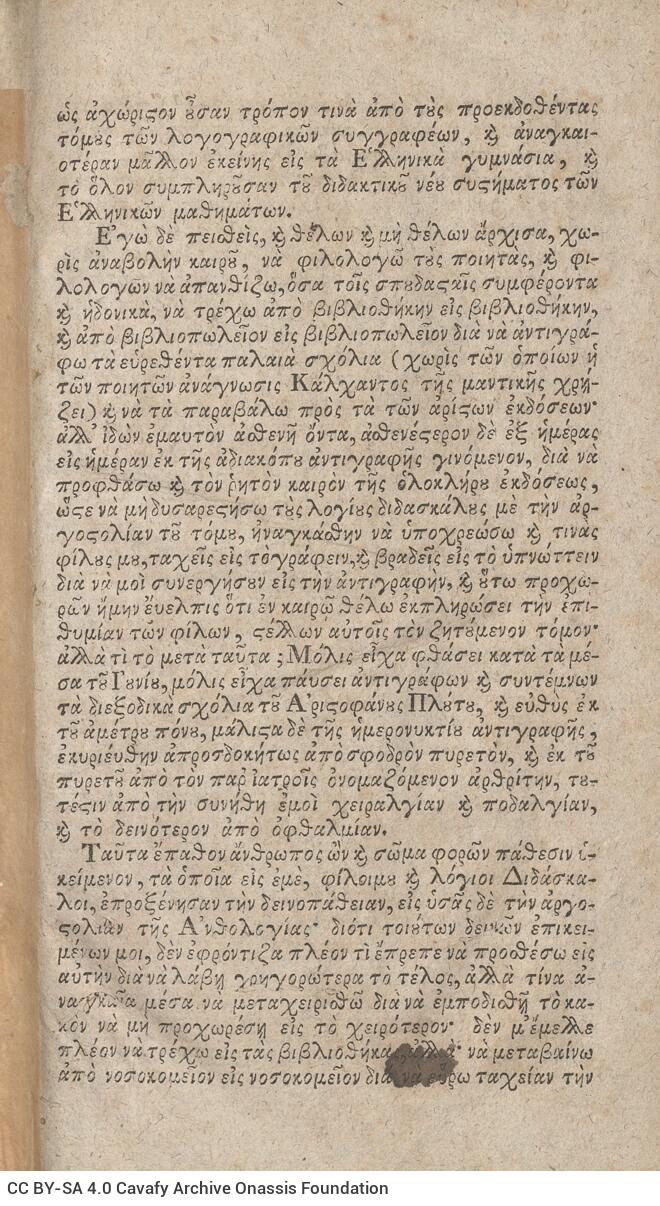 ὡς ἀχώριϛον ȣ̓͂σαν τρόπον τινὰ ἀπὸ τȣ̀ς προεκδοθέντας
τόμȣς τῶν λογογραφικῶν συγγραφέων, ϗ ἀναγκαι-
οτέραν μᾶλλον ἐκείνης εἰς τὰ Ἑλληνικὰ γυμνάσια, ϗ
τὸ ὅλον συμπληρȣ͂σαν τȣ͂ διδακτικȣ͂ νέȣ συϛήματος τῶν
Ἑλληνικῶν μαθημάτων.
Ἐγὼ δὲ πειθεὶς, ϗ θέλων ϗ μὴ θέλων ἄρχισα, χω-
ρὶς ἀναβολὴν καιρȣ͂, νὰ φιλολογῶ τȣ̀ς ποιητὰς, ϗ φι-
λολογῶν νὰ ἀπανθίζω, ὅσα τοῖς σπȣδαϛαῖς συμφέροντα
ϗ ἡδονικὰ, νὰ τρέχω ἀπὸ βιβλιοθήκην εἰς βιβλιοθήκην,
ϗ ἀπὸ βιβλιοπωλεῖον εἰς βιβλιοπωλεῖον διὰ νὰ ἀντιγρά-
φω τὰ εὑρεθέντα παλαιὰ σχόλια (χωρὶς τῶν ὁποίων ἡ
τῶν ποιητῶν ἀνάγνωσις Κάλχαντος τῆς μαντικῆς χρῄ-
ζει) ϗ νὰ τὰ παραβάλω πρὸς τὰ τῶν ἀρίϛων ἐκδόσεων·
ἀλλ' ἰδὼν ἐμαυτὸν ἀσθενῆ ὄντα, ἀσθενέϛερον δὲ ἐξ ἡμέρας
εἰς ἡμέραν ἐκ τῆς ἀδιακόπȣ ἀντιγραφῆς γινόμενον, διὰ νὰ
προφθάσω ϗ τὸν ῥητὸν καιρὸν τῆς ὁλοκλήρȣ ἐκδόσεως,
ὥϛε νὰ μὴ δυσαρεϛήσω τȣ̀ς λογίȣς διδασκάλȣς με τὴν ἀρ-
γοϛολίαν τȣ͂ τόμȣ, ἠναγκάσθην νὰ ὑποχρεώσω ϗ τινὰς
φίλȣς μȣ, ταχεῖς εἰς τὸ γράφειν, ϗ βραδεῖς εἰς τὸ ὑπνώττειν
διὰ νὰ μοὶ συνεργήσȣν εἰς τὴν ἀντιγραφὴν, ϗ ȣ̔́τω προχω-
ρῶν ἤμην ἔυελπις ὅτι ἐν καιρῷ θέλω ἐκπληρώσει τὴν ἐπι-
θυμίαν τῶν φίλων, ϛέλλων αὐτοῖς τὸν ζητȣ́μενον τόμον·
ἀλλὰ τί τὸ μετὰ ταῦτα; Μόλις εἶχα φθάσει κατὰ τὰ μέ-
σα τȣ͂ Ἰȣνίȣ, μόλις εἶχα πάυσει ἀντιγράφων ϗ συντέμνων
τὰ διεξοδικὰ σχόλια τȣ͂ Ἀριϛοφάνȣς Πλȣ́τȣ, ϗ εὐθὺς ἐκ
τȣ͂ ἀμέτρȣ πόνȣ, μάλιϛα δὲ τῆς ἡμερονυκτίȣ ἀντιγραφῆς,
ἐκυριέυθην ἀπροσδοκήτως ἀπὸ σφοδρὸν πυρετὸν, ϗ ἐκ τȣ͂
πυρετȣ͂ ἀπὸ τὸν παρ' ἰατροῖς ὀνομαζόμενον ἀρθρίτην, τȣ-
τέϛιν ἀπὸ τὴν συνήθη ἐμοὶ χειραλγίαν ϗ ποδαλγίαν,
ϗ τὸ δεινότερον ἀπὸ ὀφθαλμίαν.
Ταῦτα ἔπαθον ἄνθρωπος ὢν ϗ σῶμα φορῶν πάθεσιν ὑ-
κείμενον, τὰ ὁποῖα εἰς ἐμὲ, φίλοι μȣ ϗ λόγιοι Διδάσκα-
λοι, ἐπροξένησαν τὴν δεινοπάθειαν, εἰς ὑσᾶς δὲ τὴν ἀργο-
ϛολίαν τῆς Ἀνθολογίας· διότι τοιȣ́των δεινῶν ἐπικει-
μένων μοι, δὲν ἐφρόντιζα πλέον τί ἔπρεπε νὰ προσθέσω εἰς
αὐτὴν διὰ νὰ λάβῃ γρηγορώτερα τὸ τέλος, ἀλλὰ τίνα ἀ-
ναγκαῖα μέσα νὰ μεταχειρισθῶ διὰ νὰ ἐμποδισθῇ τὸ κα-
κὸν νὰ μὴ προχωρέσῃ εἰς τὸ χειρότερον· δὲν μ' ἔμελλε
πλέον νὰ τρέχω εἰς τὰς βιβλιοθήκας, ἀλλὰ νὰ μεταβαίνω
ἀπὸ νοσοκομεῖον εἰς νοσοκομεῖον διὰ νὰ εὕρω ταχείαν τὴν
CC BY-SA 4.0 Cavafy Archive Onassis Foundation